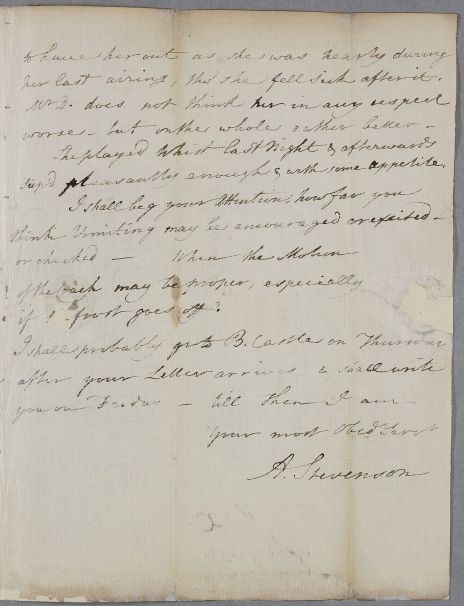 to have her out as she was nearly during
her last airing, tho' she fell sick after it.
Mr D. does not think her in any respect
worse - but on the whole rather better -
She played Whist last Night & afterwards
sup'd pleasantly enough & with some appetite.
I shall beg your Attention, how far you
think Vomiting may be encouraged or excited -
or checked - When the Motion
of the may be proper, especially
if frost goes off?
I shall probably go to B. Castle on Thursday
after your Letter arrives, & shall write
you on Friday - till then I am
Your most Obedt Servt
A. Stevenson